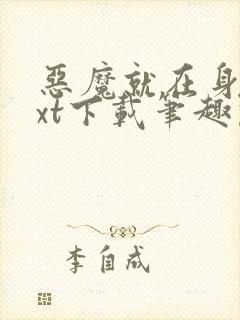 惡魔就在身
xt下載筆趣
李自成